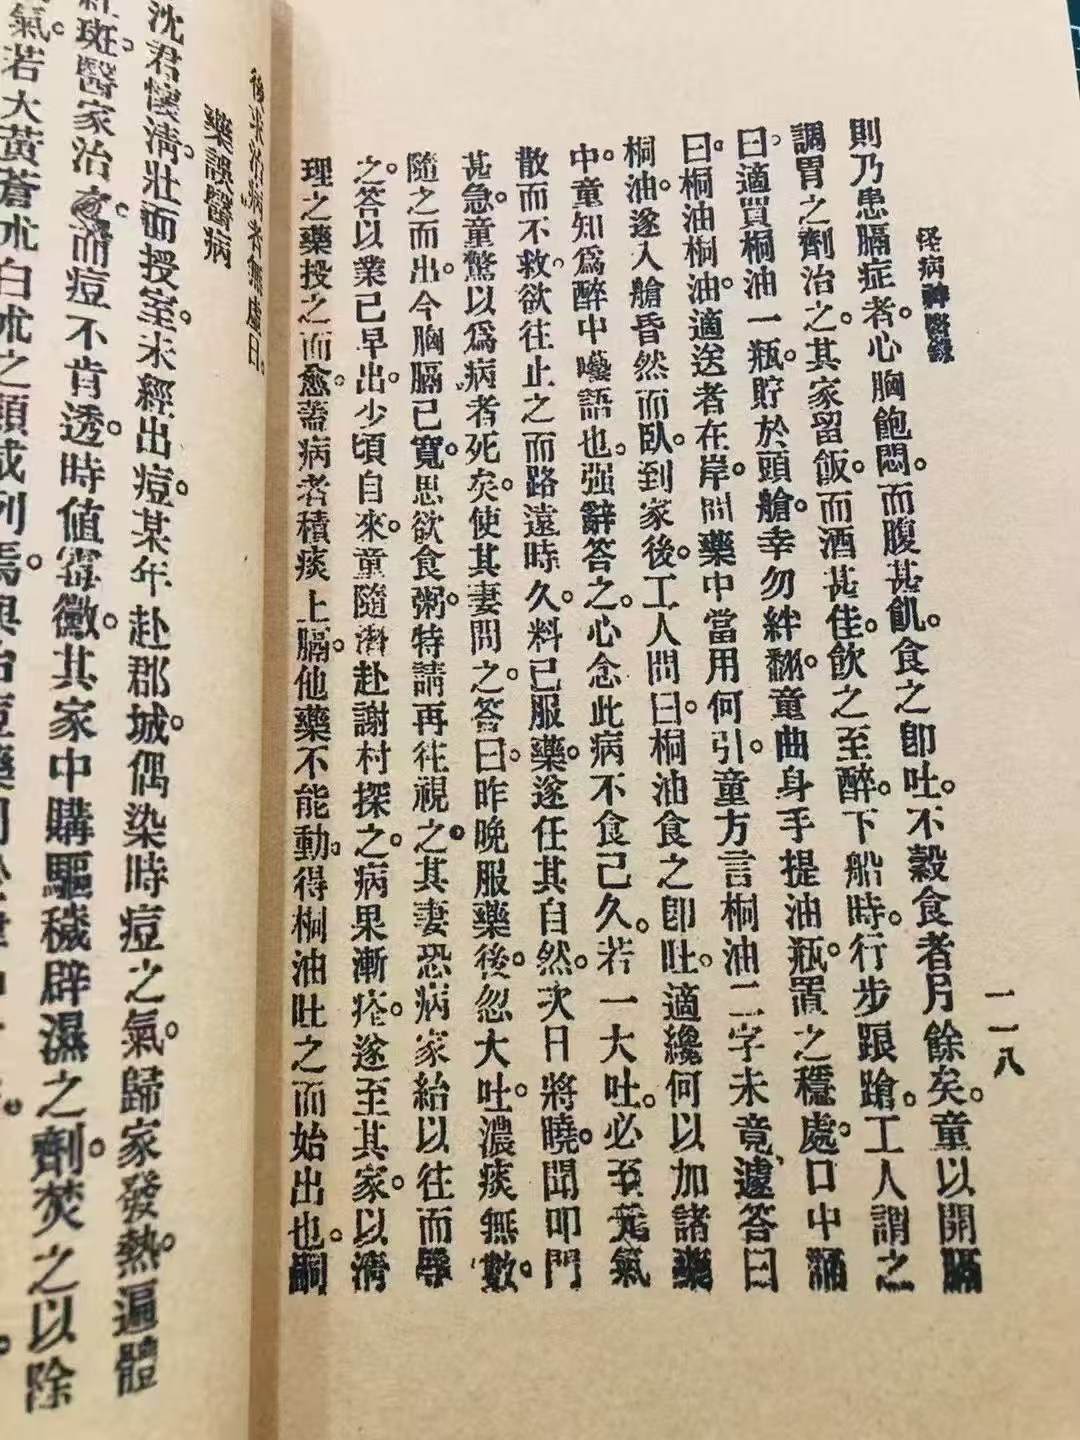 怪病神醫錄
一一八
則乃患膈症者。心胸飽悶。而腹甚飢。食之卽吐。不穀食者月餘矣。童以開膈
調胃之劑治之。其家留飯。而酒甚佳。飮之至醉。下船時。行步踉蹌。工人謂之
曰。適買桐油一瓶。貯於頭艙。幸勿絆翻。童曲身手提油瓶。置之穩處。口中誦
曰。桐油桐油。適送者在岸。問藥中當用何引。童方言桐油二字未竟。遽答曰
桐油。遂入艙昏然而臥。到家後。工人問曰。桐油食之卽吐。適纔何以加諸藥
中。童知爲醉中囈語也。强辭答之。心念此病不食已久。若一大吐。必至元氣
散而不救。欲往止之。而路遠時久。料已服藥。遂任其自然。次日將曉。聞叩門
甚急。童驚以爲病者死矣。使其妻問之。答曰。昨晚服藥後。忽大吐。濃痰無數。
隨之而出。今胸膈已寬。思欲食粥。特請再往視之。其妻恐病家紿以往而辱
之。答以業已早出。少頃自來。童隨潛赴謝村探之。病果漸痊。遂至其家。以淸
理之藥投之而愈。蓋病者積痰上膈。他藥不能動。得桐油吐之而始出也。嗣
後來治病者無虛日。
藥誤醫病
沈君懷淸。壯而授室。未經出痘。某年赴郡城。偶染時痘之氣。歸家發熱。遍體
紅斑。醫家治之。而痘不肯透。時値霉黴。其家中購驅穢辟濕之劑。焚之以除
氣。若大黃蒼朮白朮之類咸列焉。